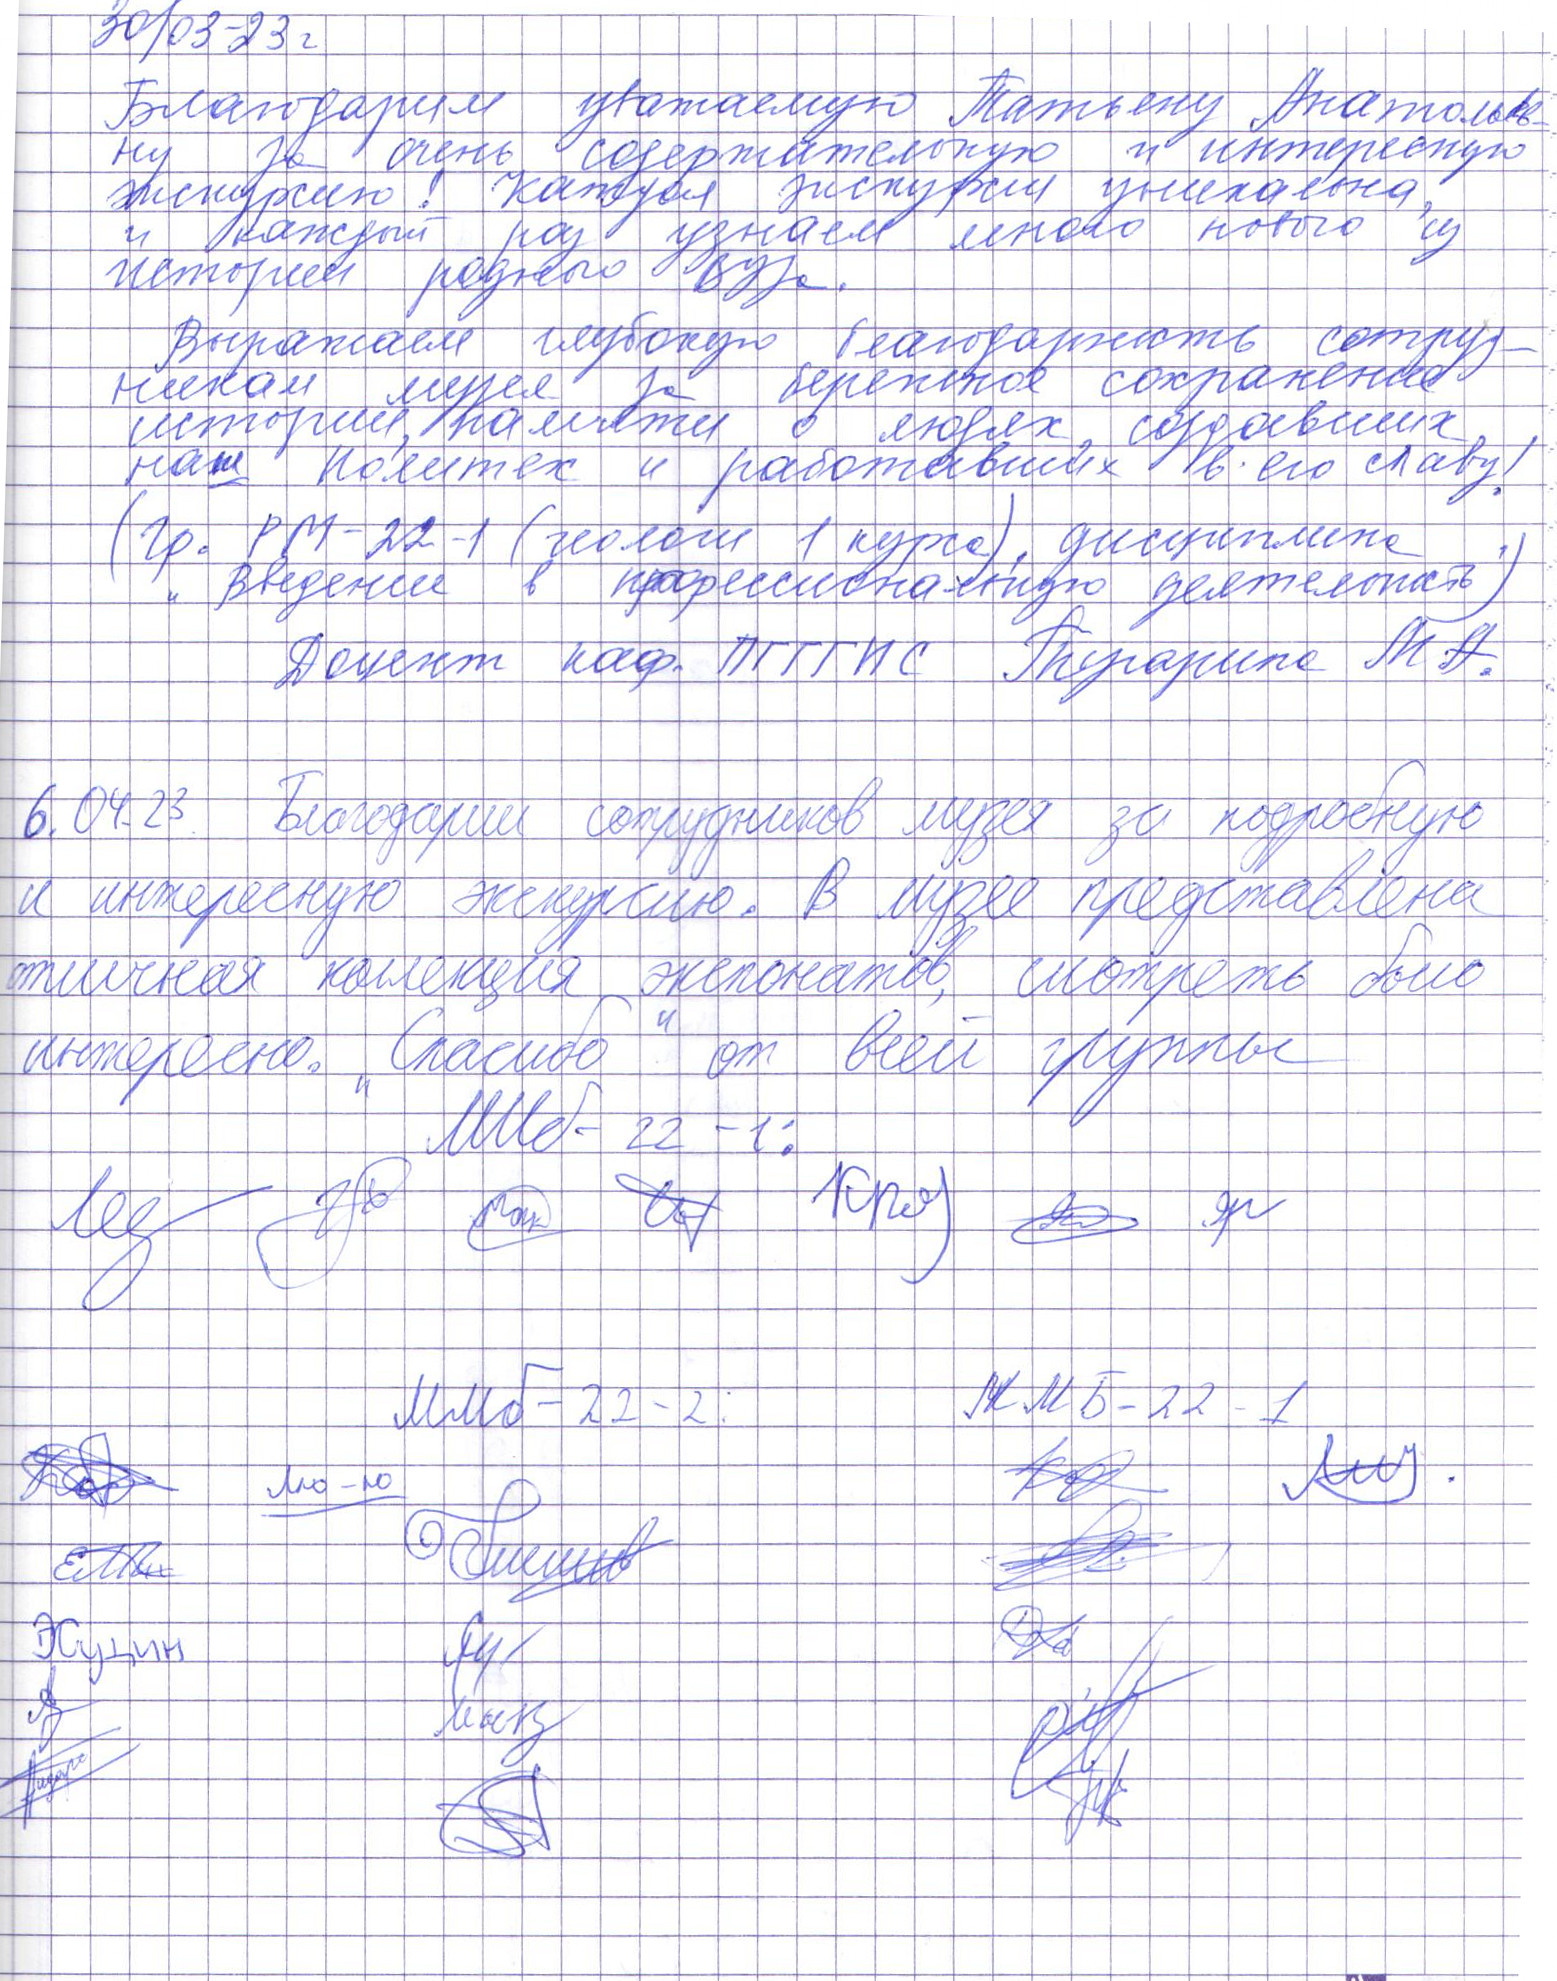 30/03-23 г
Благодарим уважаемую Татьяну Анатольев-
ну за очень содержательную и интересную
экскурсию! Каждая экскурсия уникальна,
и каждый раз узнаем много нового из
истории родного ВУЗа.
Выражаем глубокую благодарность сотруд-
никам музея за бережное сохранение
истории, памяти о людях, создавших
наш Политех и работавших в его славу!
(Гр. РМ-22-1 (геологи 1 курса), дисциплина
„Введение в профессиональную деятельность")
Доцент каф. ПГГГИС Тугарина М.А.
6.04.23. Благодарим сотрудников музея за подробную
и интересную экскурсию. В музее представлена
отличная коллекция экспонатов, смотреть было
интересно. „Спасибо" от всей группы
ММб-22-1:
ММб-22-2: ЖМБ-22-1